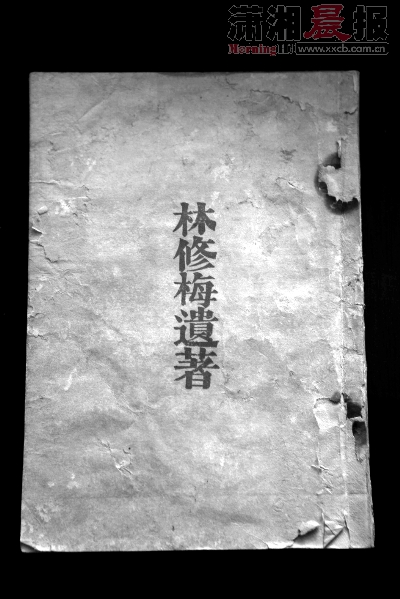 潇湘晨报
Morning
www.xxcb.com.cn
林修梅遺著